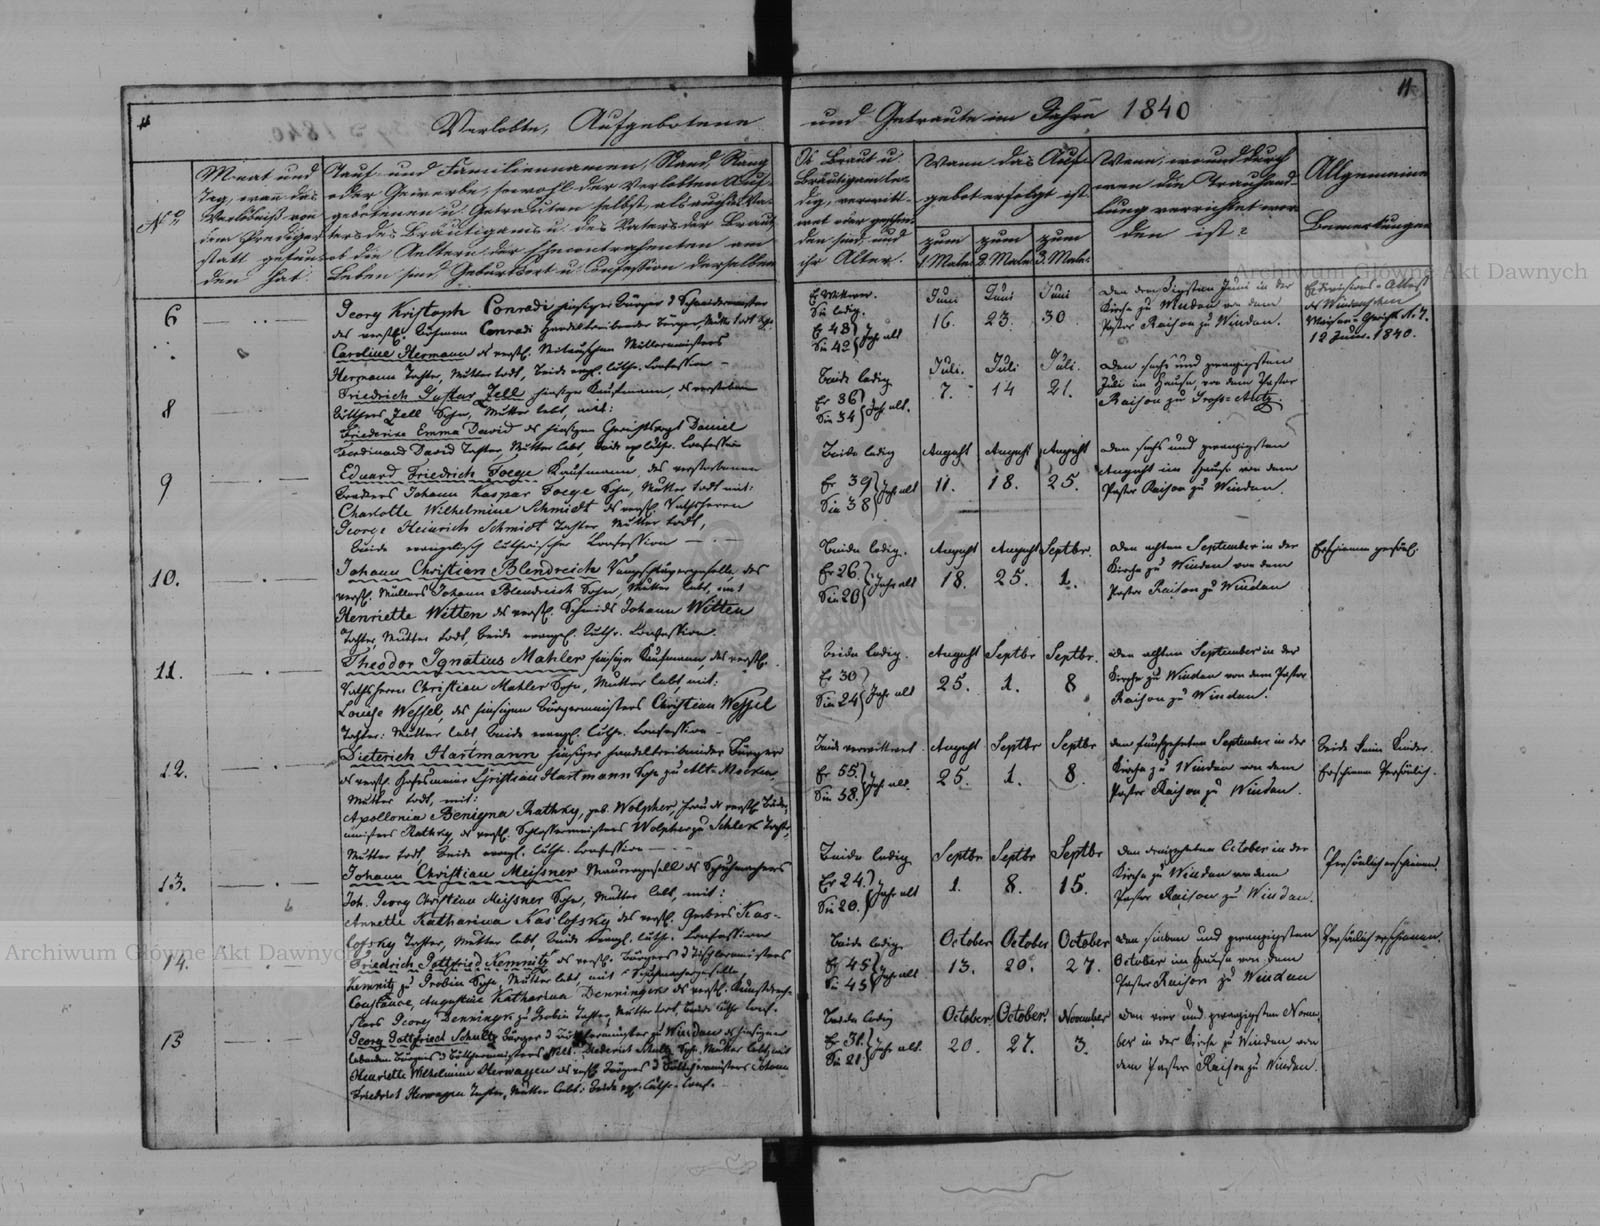 11
Verlobte, Aufgebotene und Getraute im Jahre 1840
No
Monat und
Tag, wann das
Verlöbniß von
dem Prediger
statt gefun-
den hat.
Tauf- und Familiennamen, Stand, Rang
oder Gewerbe, sowohl der Verlobten Auf-
gebotenen u. Getrauten selbst, als auch des Va-
ters des Bräutigams u. des Vaters der Braut,
ob die Aeltern der Ehecontrahenten am
Leben sind, Geburtsort u. Confession derselben
Ob Braut u.
Bräutigam le-
dig, verwitt-
wet oder geschie-
den sind, und
ihr Alter.
Wann das Auf-
gebot erfolgt ist
zum 1. Male.
zum 2. Male
zum 3. Male.
Wann, wo und durch
wen die Trauhand-
lung verrichtet wor-
den ist?
Allgemeine
Bemerkungen
6
Georg Kristoph Conradi hiesiger Bürger u. Schneidermeister
des verst. Conradi Handeltreibender Bürger, Mutter todt
Caroline Hermann des verst. Müllermeisters
Hermann Tochter, Mutter todt, beide evgl. luthr. Confession
Er Wittwer.
Sie ledig.
Er 48
Sie 42 Jahr alt
Juni 16.
Juni 23.
Juni 30.
Den Juni in der
Kirche zu Windau von dem
Pastor Raison zu Windau.
Attest
des Windauschen
Waisen-Gerichts
12 Juni. 1840.
8
Friedrich Gustav Zell hiesiger Kaufmann, des verstorbenen
Zell Sohn, Mutter lebt, mit:
Friederike Emma David des hiesigen Daniel
Ferdinand David Tochter, Mutter lebt, beide ev. luthr. Confession
Beide ledig
Er 36
Sie 34 Jahr alt.
Juli. 7.
Juli 14
Juli. 21.
Den sechs und zwanzigsten
Juli im Hause, von dem Pastor
Raison zu Groß-Autz.
9
Eduard Friedrich Foege Kaufmann, des verstorbenen
Johann Kaspar Foege Sohn, Mutter todt mit:
Charlotte Wilhelmine Schmidt des verst. Rathsherrn
George Heinrich Schmidt Tochter Mutter todt,
Beide evangelisch lutherischer Confession
Beide ledig
Er 39
Sie 38 Jahr alt
August 11.
August 18.
August 25.
Den sechs und zwanzigsten
August im Hause von dem
Pastor Raison zu Windau.
10.
Johann Christian Blendreich des
verst. Müllers Johann Blendreich Sohn, Mutter lebt, mit
Henriette Witten des verst. Schmids Johann Witten
Tochter, Mutter todt, beide evangl. Luthr. Confession.
Beide ledig.
Er 26.
Sie 20 Jahr alt
August 18.
August 25.
Septbr. 1.
Den achten September in der
Kirche zu Windau von dem
Pastor Raison zu Windau
Erschienen persönl.
11.
Theodor Ignatius Mahler hiesiger Kaufmann, des verst.
Rathsherrn Christian Mahler Sohn, Mutter lebt, mit:
Louise Wessel, des hiesigen Bürgermeisters Christian Wessel
Tochter: Mutter lebt beide evangl. luthr. Confession
Beide ledig.
Er 30
Sie 24 Jahr alt
August 25.
Septbr 1.
Septbr. 8
Den achten September in der
Kirche zu Windau von dem Pastor
Raison zu Windau.
12.
Dieterich Hartmann hiesiger handeltreibender Bürger
des verst. Christian Hartmann Sohn zu Alt-Mocken,
Mutter todt, mit:
Apollonia Benigna Rathky, geb. Wolpher, Frau des verst.
meisters Rathky, des verst. Schlossermeisters Wolpher zu Schleck Tochter,
Mutter todt, beide evangl. luthr. Confession
Beide verwittwet
Er 55.
Sie 38. Jahr alt.
August 25.
Septbr 1.
Septbr 8.
Den funfzehnten September in der
Kirche zu Windau von dem
Pastor Raison zu Windau.
Beide keine Kinder.
Erschienen Persönlich.
13.
Johann Christian Meissner Maurergesell des Schuhmachers
Joh. Georg Christian Meissner Sohn, Mutter lebt, mit:
Annette Katharina Kaslofsky des verst. Gerbers Kas-
lofsky Tochter, Mutter lebt, beide evangl. luthr. Confession
Beide ledig
Er 24.
Sie 20. Jahr alt
Septbr 1.
Septbr 8.
Septbr 15.
Den dreizehnten October in der
Kirche zu Windau von dem
Pastor Raison zu Windau.
Persönlich erschienen.
14.
Friedrich Gottfried Kemnitz des verst. Bürgers u. Tischlermeisters
Kemnitz zu Grobin Sohn, Mutter lebt, mit
Constance, Augustine Katharina Denningk des verst. Kunstdrech-
slers Georg Denningk zu Grobin Tochter, Mutter todt, beide luthr. Conf.
Beide ledig.
Er 45
Sie 45 Jahr alt
October 13.
October 20.
October 27.
Den sieben und zwanzigsten
October im Hause von dem
Pastor Raison zu Windau
Persönlich erschienen.
15
Georg Gottfried Schultz Bürger u. Böttchermeister zu Windau des hiesigen
lebenden Bürgers u. Böttchermeisters Friederich Schultz Sohn, Mutter lebt, mit
Henriette Wilhelmine Herwagen des verst. Bürgers u. Böttchermeisters Johann
Friedrich Herwagen Tochter, Mutter lebt: beide evgl. luthr. Conf.
Beide ledig
Er 31.
Sie 21. Jahr alt.
October 20.
October. 27.
November 3.
Den vier und zwanzigsten Novem-
ber in der Kirche zu Windau von
dem Pastor Raison zu Windau.
Archiwum Główne Akt Dawnych
Archiwum Główne Akt Dawnych